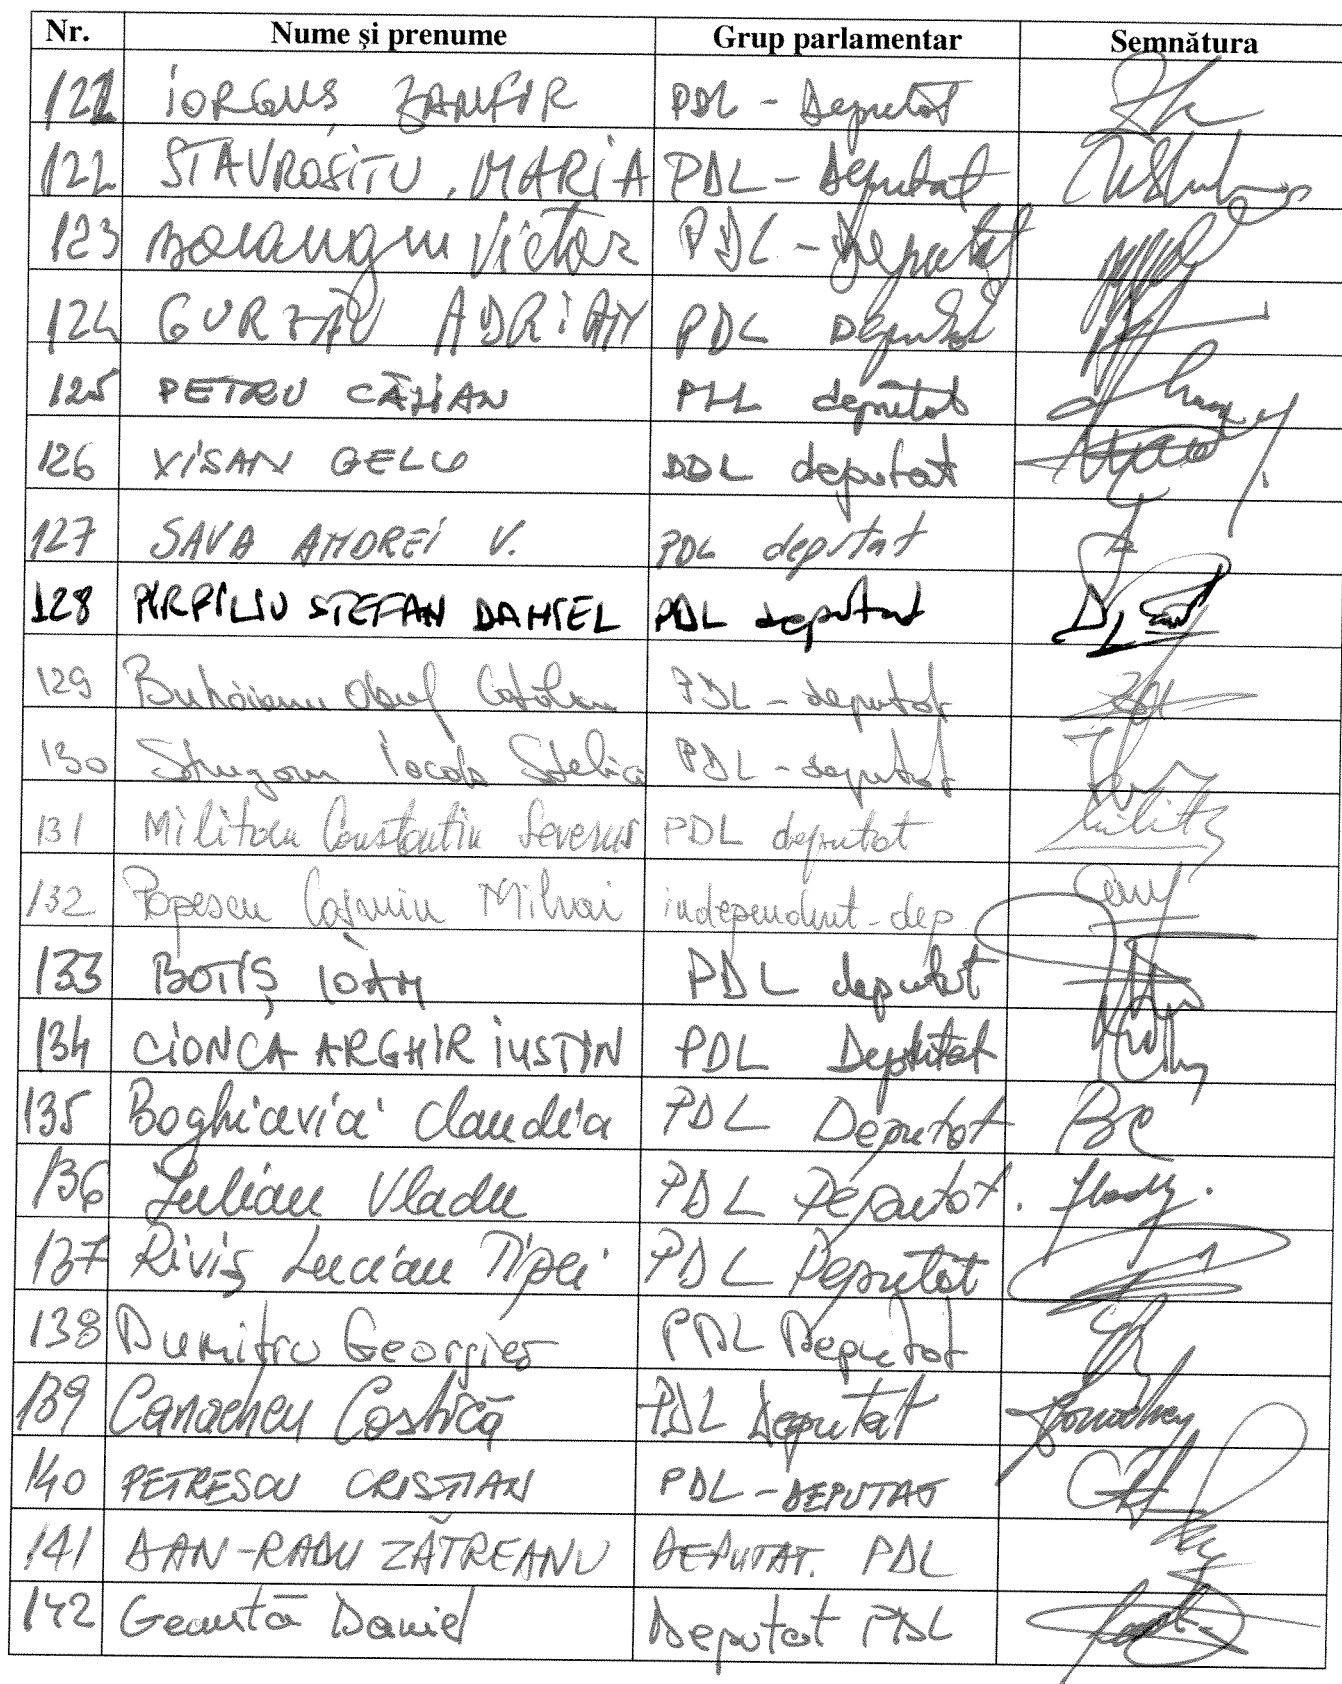 Nr. Nume şi prenume Grup parlamentar Semnătura
121 IORGUŞ ZANFIR PDL - Deputat
122 STAVROSITU MARIA PDL - Deputat
123 Boiangiu Victor PDL - Deputat
124 GURZĂU ADRIAN PDL Deputat
125 PETRU CĂLIAN PDL deputat
126 VISAN GELU PDL deputat
127 SAVA ANDREI V. PDL deputat
128 PIRPILIU STEFAN DANIEL PDL deputat
129 Buhăianu Obuf Cătălin PDL - deputat
130 Strugaru Iacob Stelica PDL - deputat
131 Militaru Constantin Severus PDL deputat
132 Popescu Cosmin Mihai independent-dep
133 BOTIŞ IOAN PDL deputat
134 CIONCA ARGHIR IUSTIN PDL Deputat
135 Boghicevici Claudia PDL Deputat
136 Iulian Vladu PDL Deputat.
137 Riviş Lucian Tipei PDL Deputat
138 Dumitru Georgică PDL Deputat
139 Canacheu Costică PDL Deputat
140 PETRESCU CRISTIAN PDL - DEPUTAT
141 DAN-RADU ZĂTREANU DEPUTAT. PDL
142 Geantă Daniel Deputat PDL